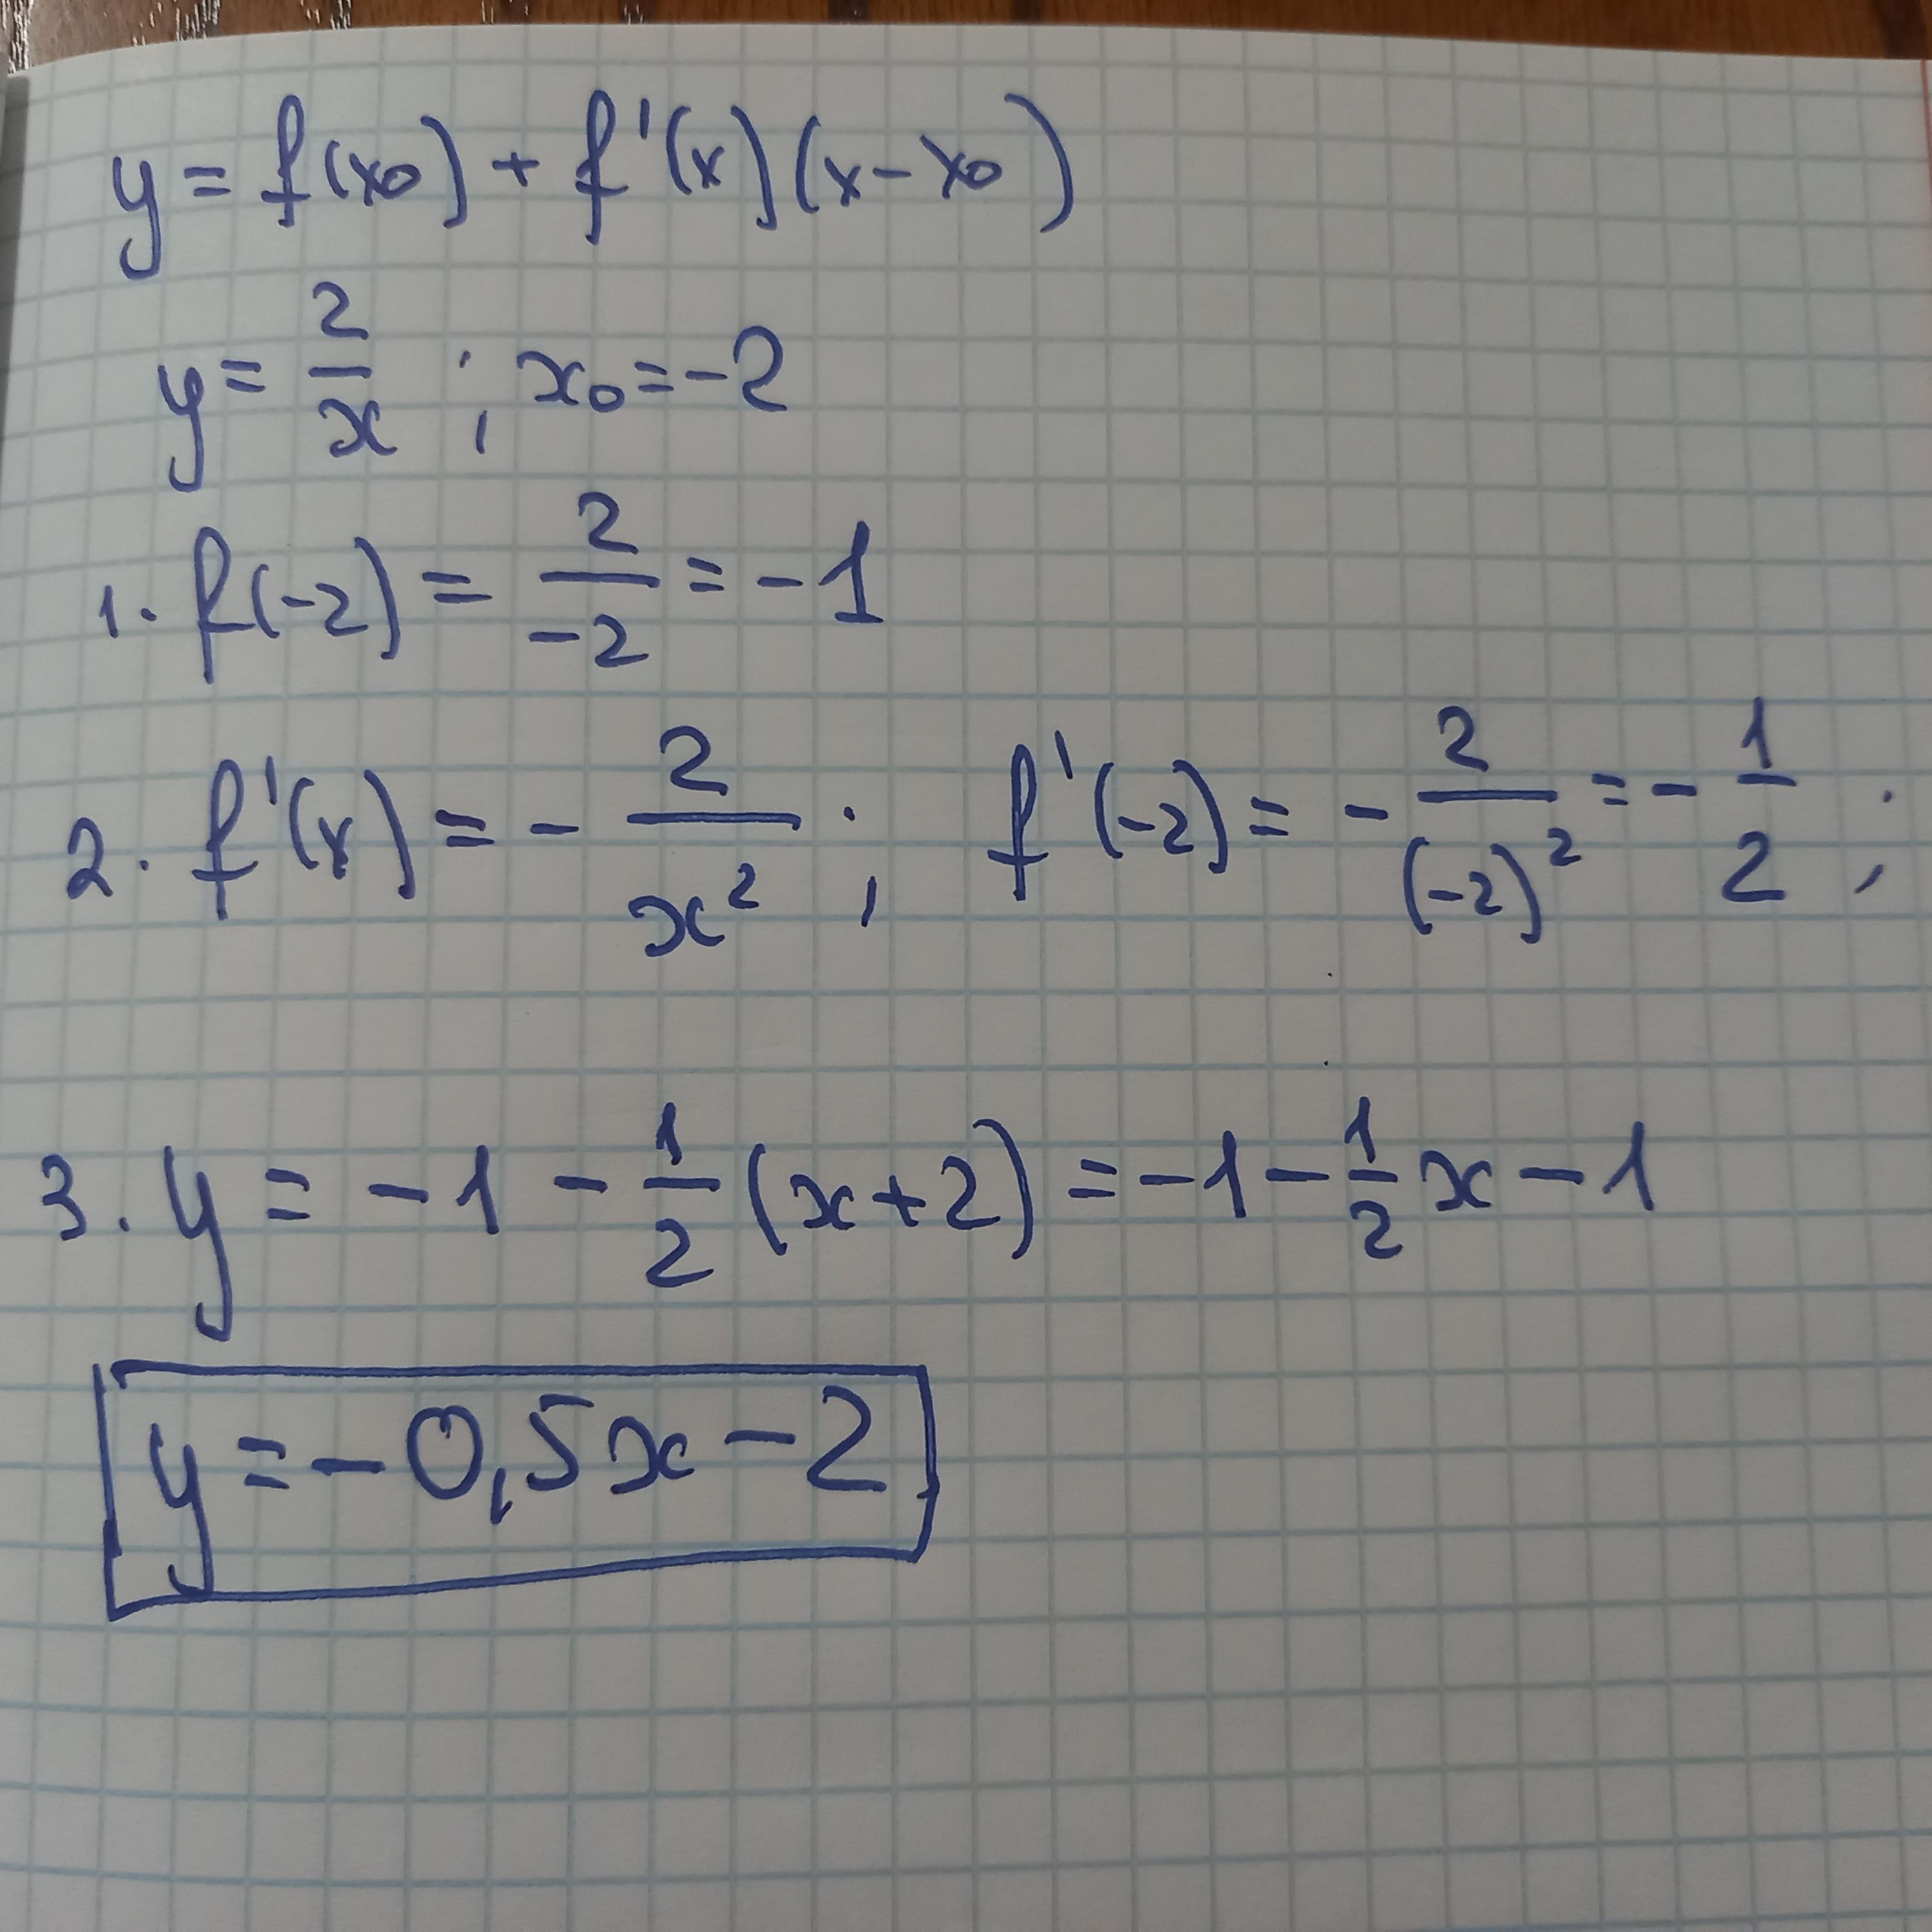 y = f(x₀) + f'(x)(x - x₀)
y = 2/x ; x₀ = -2
1. f(-2) = 2/-2 = -1
2. f'(x) = - 2/x² ; f'(-2) = - 2/(-2)² = - 1/2 ;
3. y = -1 - 1/2 (x+2) = -1 - 1/2 x - 1
y = -0,5x - 2